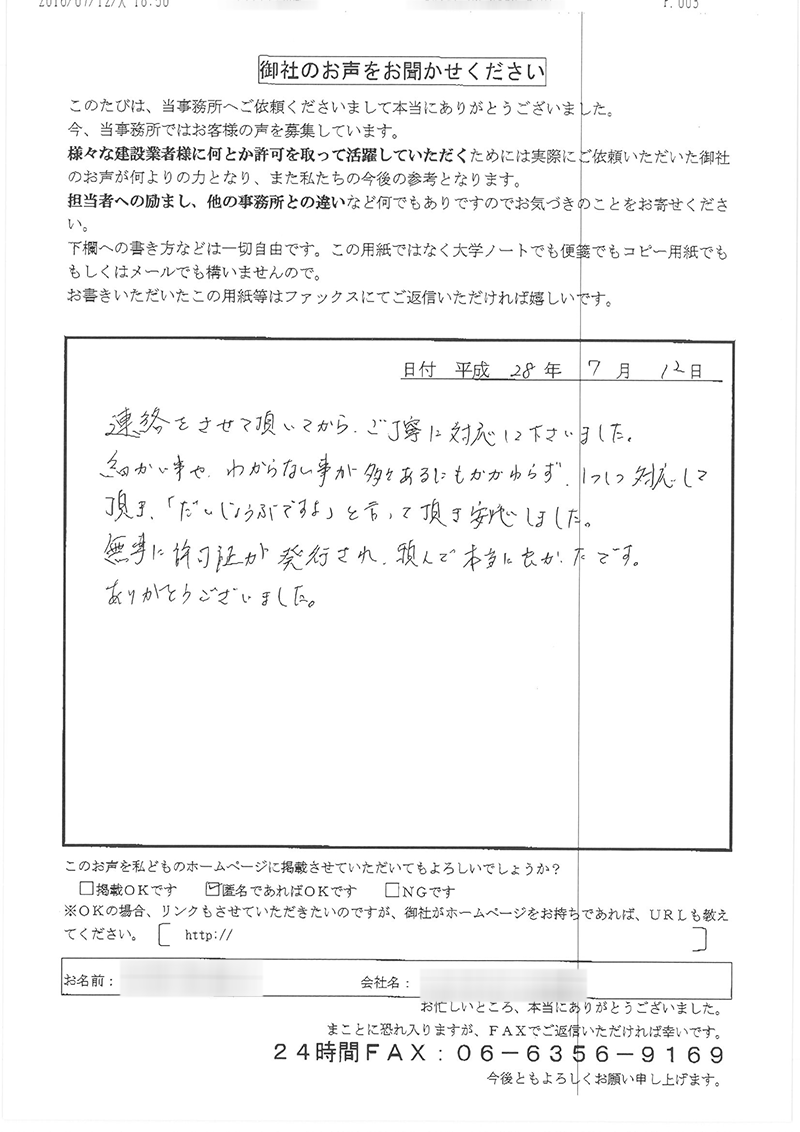 2016/07/12/火 16:50
P.003
御社のお声をお聞かせください
このたびは、当事務所へご依頼くださいまして本当にありがとうございました。
今、当事務所ではお客様の声を募集しています。
様々な建設業者様に何とか許可を取って活躍していただくためには実際にご依頼いただいた御社
のお声が何よりの力となり、また私たちの今後の参考となります。
担当者への励まし、他の事務所との違いなど何でもありですのでお気づきのことをお寄せくださ
い。
下欄への書き方などは一切自由です。この用紙ではなく大学ノートでも便箋でもコピー用紙でも
もしくはメールでも構いませんので。
お書きいただいたこの用紙等はファックスにてご返信いただければ嬉しいです。
日付 平成 28 年 7 月 12 日
連絡をさせて頂いてから、ご丁寧に対応して下さいました。
細かい事や、わからない事が多々あるにもかかわらず、1つ1つ対応して
頂き、「だいじょうぶですよ」と言って頂き安心しました。
無事に許可証が発行され、頼んで本当に良かったです。
ありがとうございました。
このお声を私どものホームページに掲載させていただいてもよろしいでしょうか？
□掲載OKです ☑匿名であればOKです □NGです
※OKの場合、リンクもさせていただきたいのですが、御社がホームページをお持ちであれば、URLも教え
てください。 [ http:// ]
お名前： 会社名：
お忙しいところ、本当にありがとうございました。
まことに恐れ入りますが、FAXでご返信いただければ幸いです。
24時間FAX：06－6356－9169
今後ともよろしくお願い申し上げます。